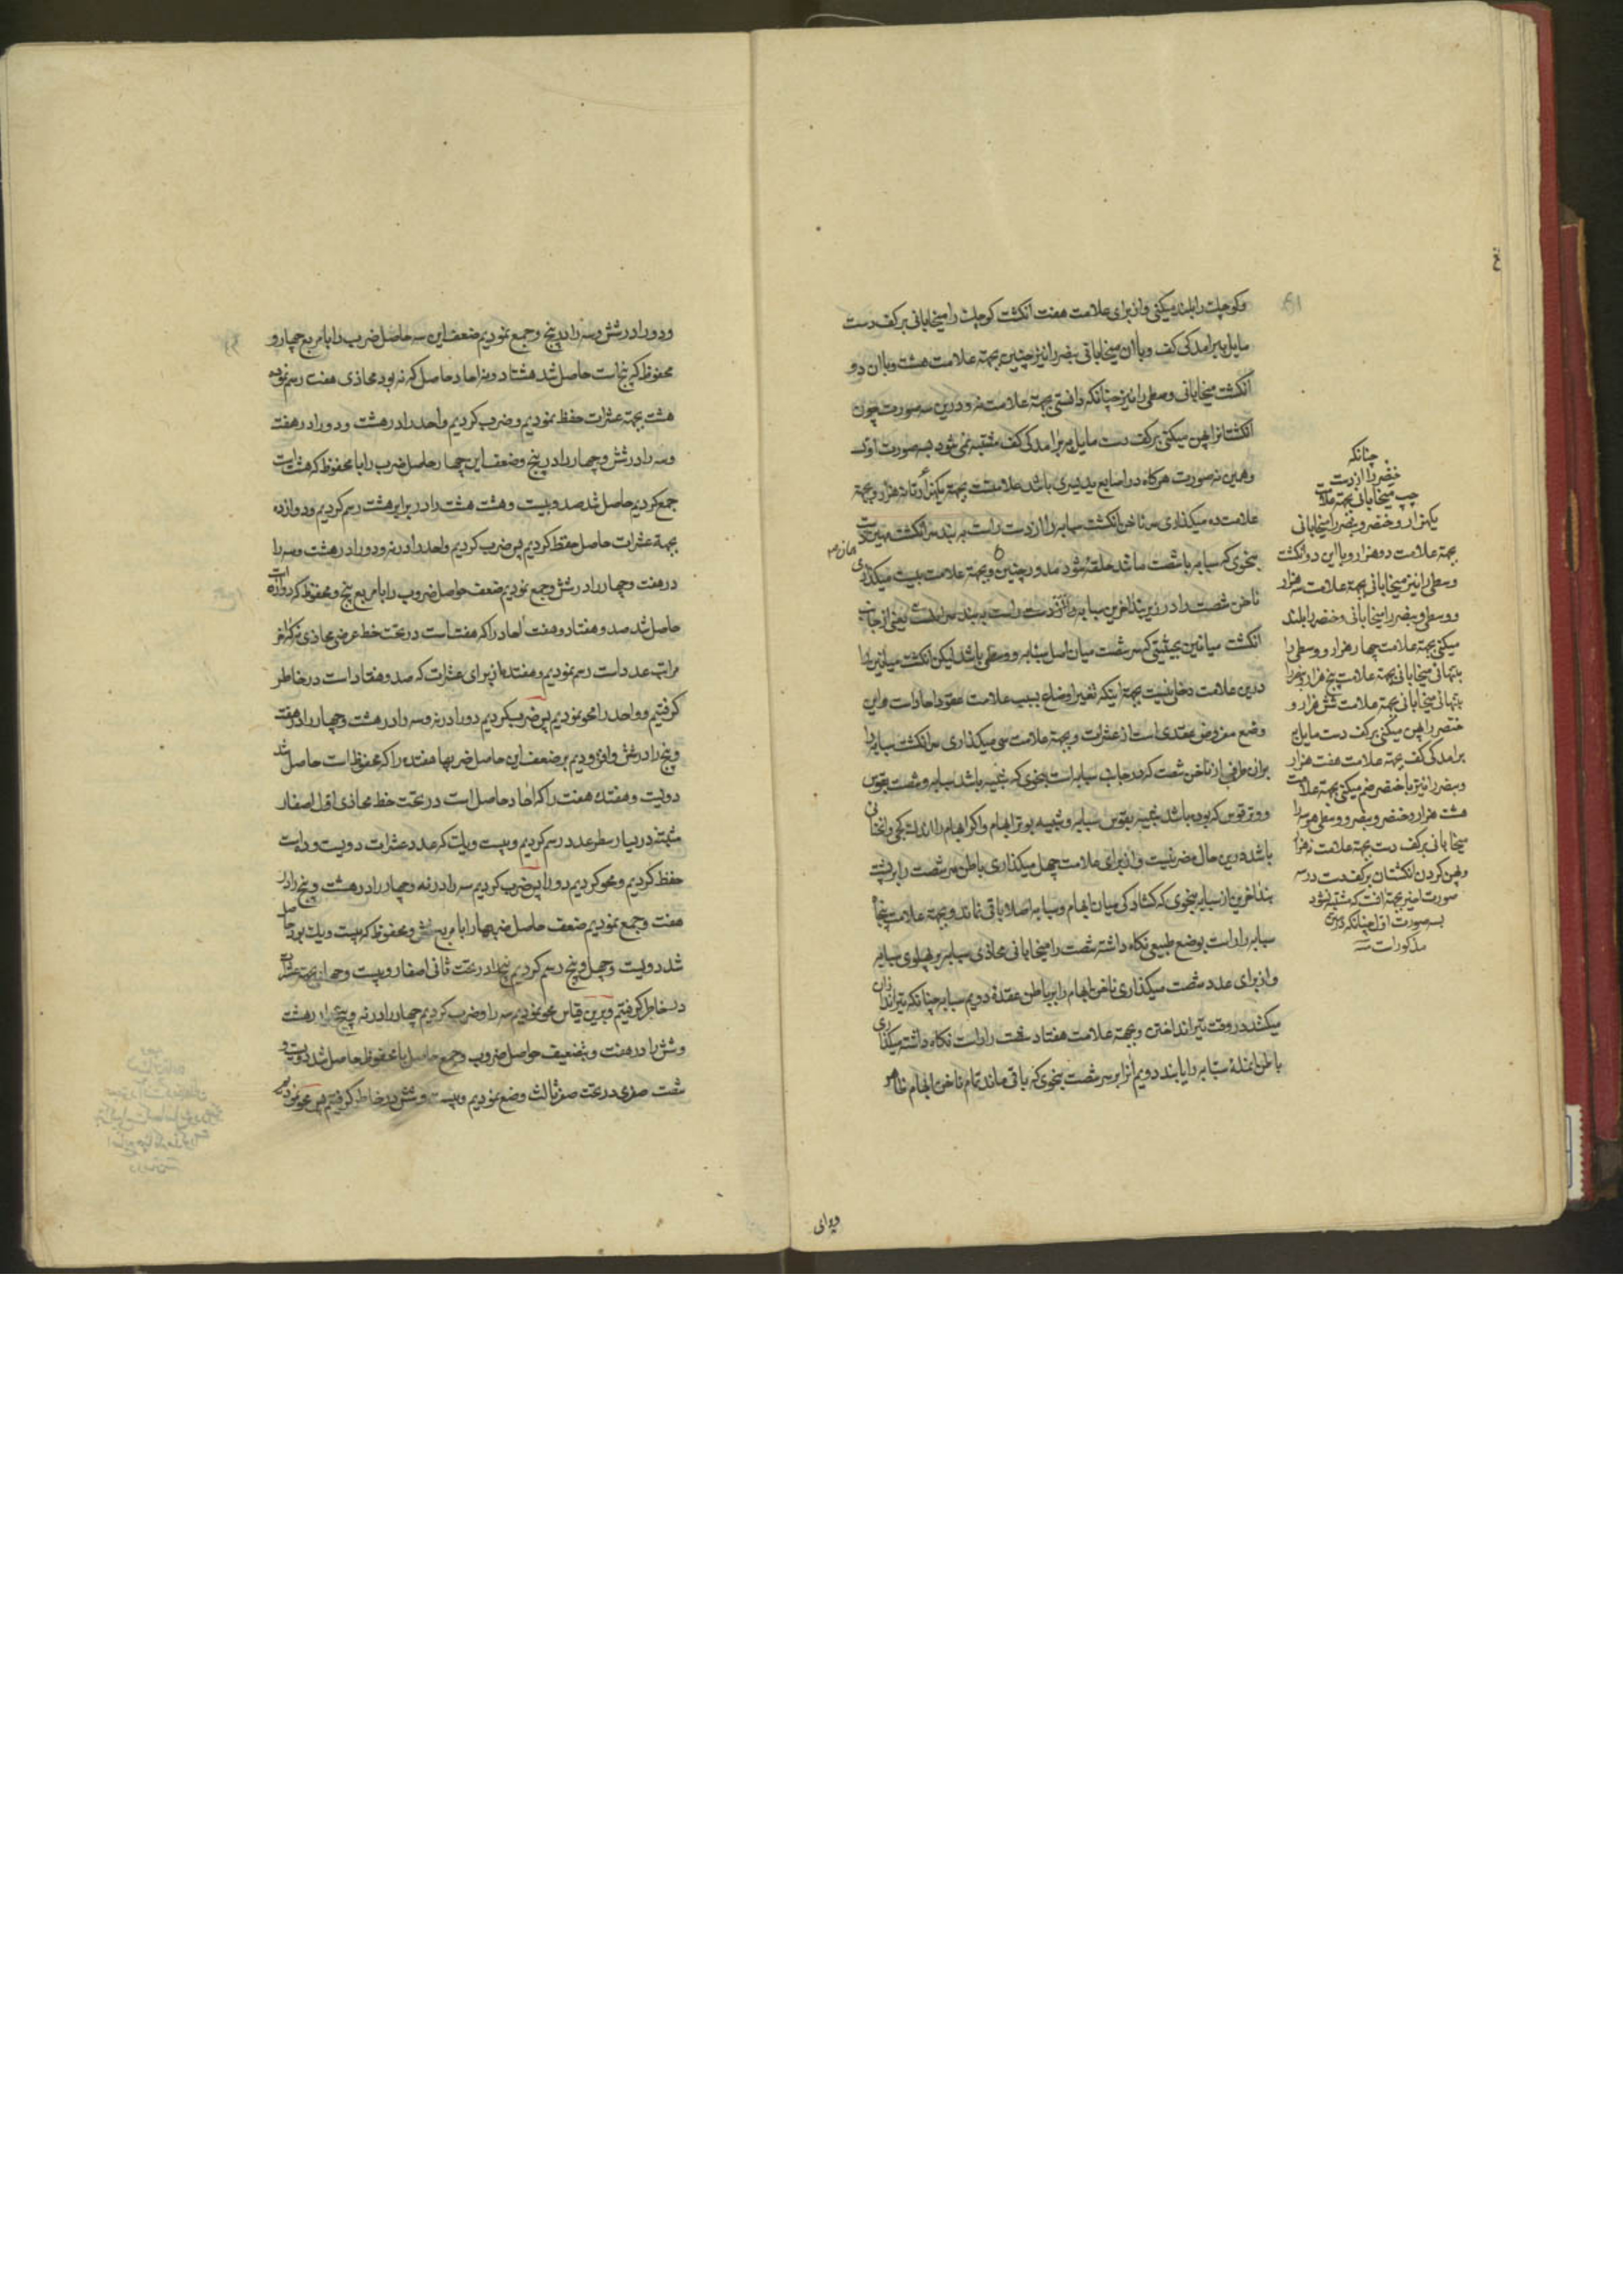 وکوچک را بلند میکنی و از برای علامت هفت انکشت کوچک را میخابانی بر کف دست
مایل ببرامدکی کف و با ان میخابانی بنصر را نیز چنین بجهة علامت هشت و با ان دو
انکشت میخابانی وسطی را نیز چنانکه دانستی بجهة علامت نه و درین سه صورت چون
انکشتانرا پهن میکنی بر کف دست مایل ببرامدکی کف مشتبه نمی شود بسه صورت اول
وهمین نه صورت هرکاه در اصابع ید یسری باشد علامتست بجهة یکهزار تا نه هزار و بجهة
علامت ده میکذاری سر ناخن انکشت سبابه را از دست راست به بند سر انکشت مهین
بنحوی که سبابه با شصت مانند حلقه شود مدور چنین ٥ و بجهة علامت بیست میکذاری
ناخن شصت را در زیر بند اخرین سبابه از دست راست
انکشت میانین بحیثیتی که سر شصت میان اصل سبابه و وسطی باشد لیکن انکشت میانین را
درین علامت دخلی نیست بجهة اینکه تغییر اوضاع بسبب علامت عقود احاد است و این
وضع مفروض عقدی است از عشرات و بجهة علامت سی میکذاری سر انکشت سبابه را
بران طرفی از ناخن شصت که در جانب سبابه است بنحوی که شبیه باشد سبابه و شصت بقوس
و وتر قوس که بوده باشد شبیه بقوس سبابه و شبیه بوتر ابهام و اکر ابهام را اندک کجی و انحنائی
باشد درین حال مضر نیست و از برای علامت چهل میکذاری باطن سر شصت را بر پشت
بند اخرین از سبابه بنحوی که کشادکی میان ابهام و سبابه اصلا باقی نماند و بجهة علامت پنجاه
سبابه را راست بوضع طبیعی نکاه داشته شصت را میخابانی محاذی سبابه بر پهلوی سبابه
و از برای عدد شصت میکذاری ناخن ابهام را بر باطن عقدۀ دویم سبابه چنانکه تیراندازان
میکشد در وقت تیر انداختن و بجهة علامت هفتاد شصت را راست نکاه داشته میکذاری
باطن انملۀ سبابه را یا بند دویم انرا بر سر شصت بنحوی که باقی ماند تمام ناخن ابهام ظاهر
چنانکه
خنصر را از دست
چپ میخابانی بجهة علامت
یکهزار و خنصر و بنصر را میخابانی
بجهة علامت دو هزار و با این دو انکشت
وسطی را نیز میخابانی بجهة علامت سه هزار
و وسطی و بنصر را میخابانی و خنصر را بلند
میکنی بجهة علامت چهار هزار و وسطی را
بتنهائی میخابانی بجهة علامت پنج هزار و بنصر را
بتنهائی میخابانی بجهة علامت شش هزار و
خنصر را پهن میکنی بر کف دست مایل ببرامدکی
کف بجهة علامت هفت هزار
و بنصر را نیز با خنصر ضم میکنی بجهة علامت
هشت هزار و خنصر و بنصر و وسطی هر سه را
میخابانی بر کف دست بجهة علامت نه هزار
و پهن کردن انکشتان بر کف دست در سه
صورت اخیر بجهة انست که مشتبه نشود
بسه صورت اول چنانکه در
مذکورات
و دو را در شش و سه را در پنج و جمع نمودیم ضعف این سه حاصل ضرب را با مربع چهار و
محفوظ که پنج است حاصل شد هشتاد و نه احاد حاصل که نه بود محاذی هفت رسم نموده
هشت بجهة عشرات حفظ نمودیم و ضرب کردیم واحد را در هشت و دو را در هفت
و سه را در شش و چهار را در پنج و ضعف این چهار حاصل ضرب را با محفوظ که هشت است
جمع کردیم حاصل شد صد و بیست و هشت هشت را در برابر هشت رسم کردیم و دوازده
بجهة عشرات حاصل حفظ کردیم پس ضرب کردیم واحد را در نه و دو را در هشت و سه را
در هفت و چهار را در شش و جمع نمودیم ضعف حواصل ضروب را با مربع پنج و محفوظ که دوازده است
حاصل شد صد و هفتاد و هفت احاد را که هفت است در تحت خط عرضی محاذی نه که اخر
مراتب عدد است رسم نمودیم و هفتده از برای عشرات که صد و هفتاد است در خاطر
کرفتیم و واحد را محو نمودیم پس ضرب کردیم دو را در نه و سه را در هشت و چهار را در هفت
و پنج را در شش و افزودیم بر ضعف این حاصل ضربها هفتده را که محفوظ است حاصل شد
دویست و هفتده هفت را که احاد حاصل است در تحت خط محاذی اول اصفار
مثبته در یسار سطر عدد رسم کردیم و بیست و یک که عدد عشرات دویست و ده است
حفظ کردیم و محو کردیم دو را پس ضرب کردیم سه را در نه و چهار را در هشت و پنج را در
هفت و جمع نمودیم ضعف حاصل ضربها را با مربع شش و محفوظ که بیست و یک بود حاصل
شد دویست و چهل و پنج رسم کردیم پنج را در تحت ثانی اصفار و بیست و چهار بجهة عشرات
در خاطر کرفتیم و برین قیاس محو نمودیم سه را و ضرب کردیم چهار را در نه و پنج را در هشت
و شش را در هفت و بتضعیف حواصل ضروب و جمع حاصل با محفوظ حاصل شد دویست و
شصت صفری در تحت صفر ثالث وضع نمودیم و بیست و شش در خاطر کرفتیم پس محو نمودیم